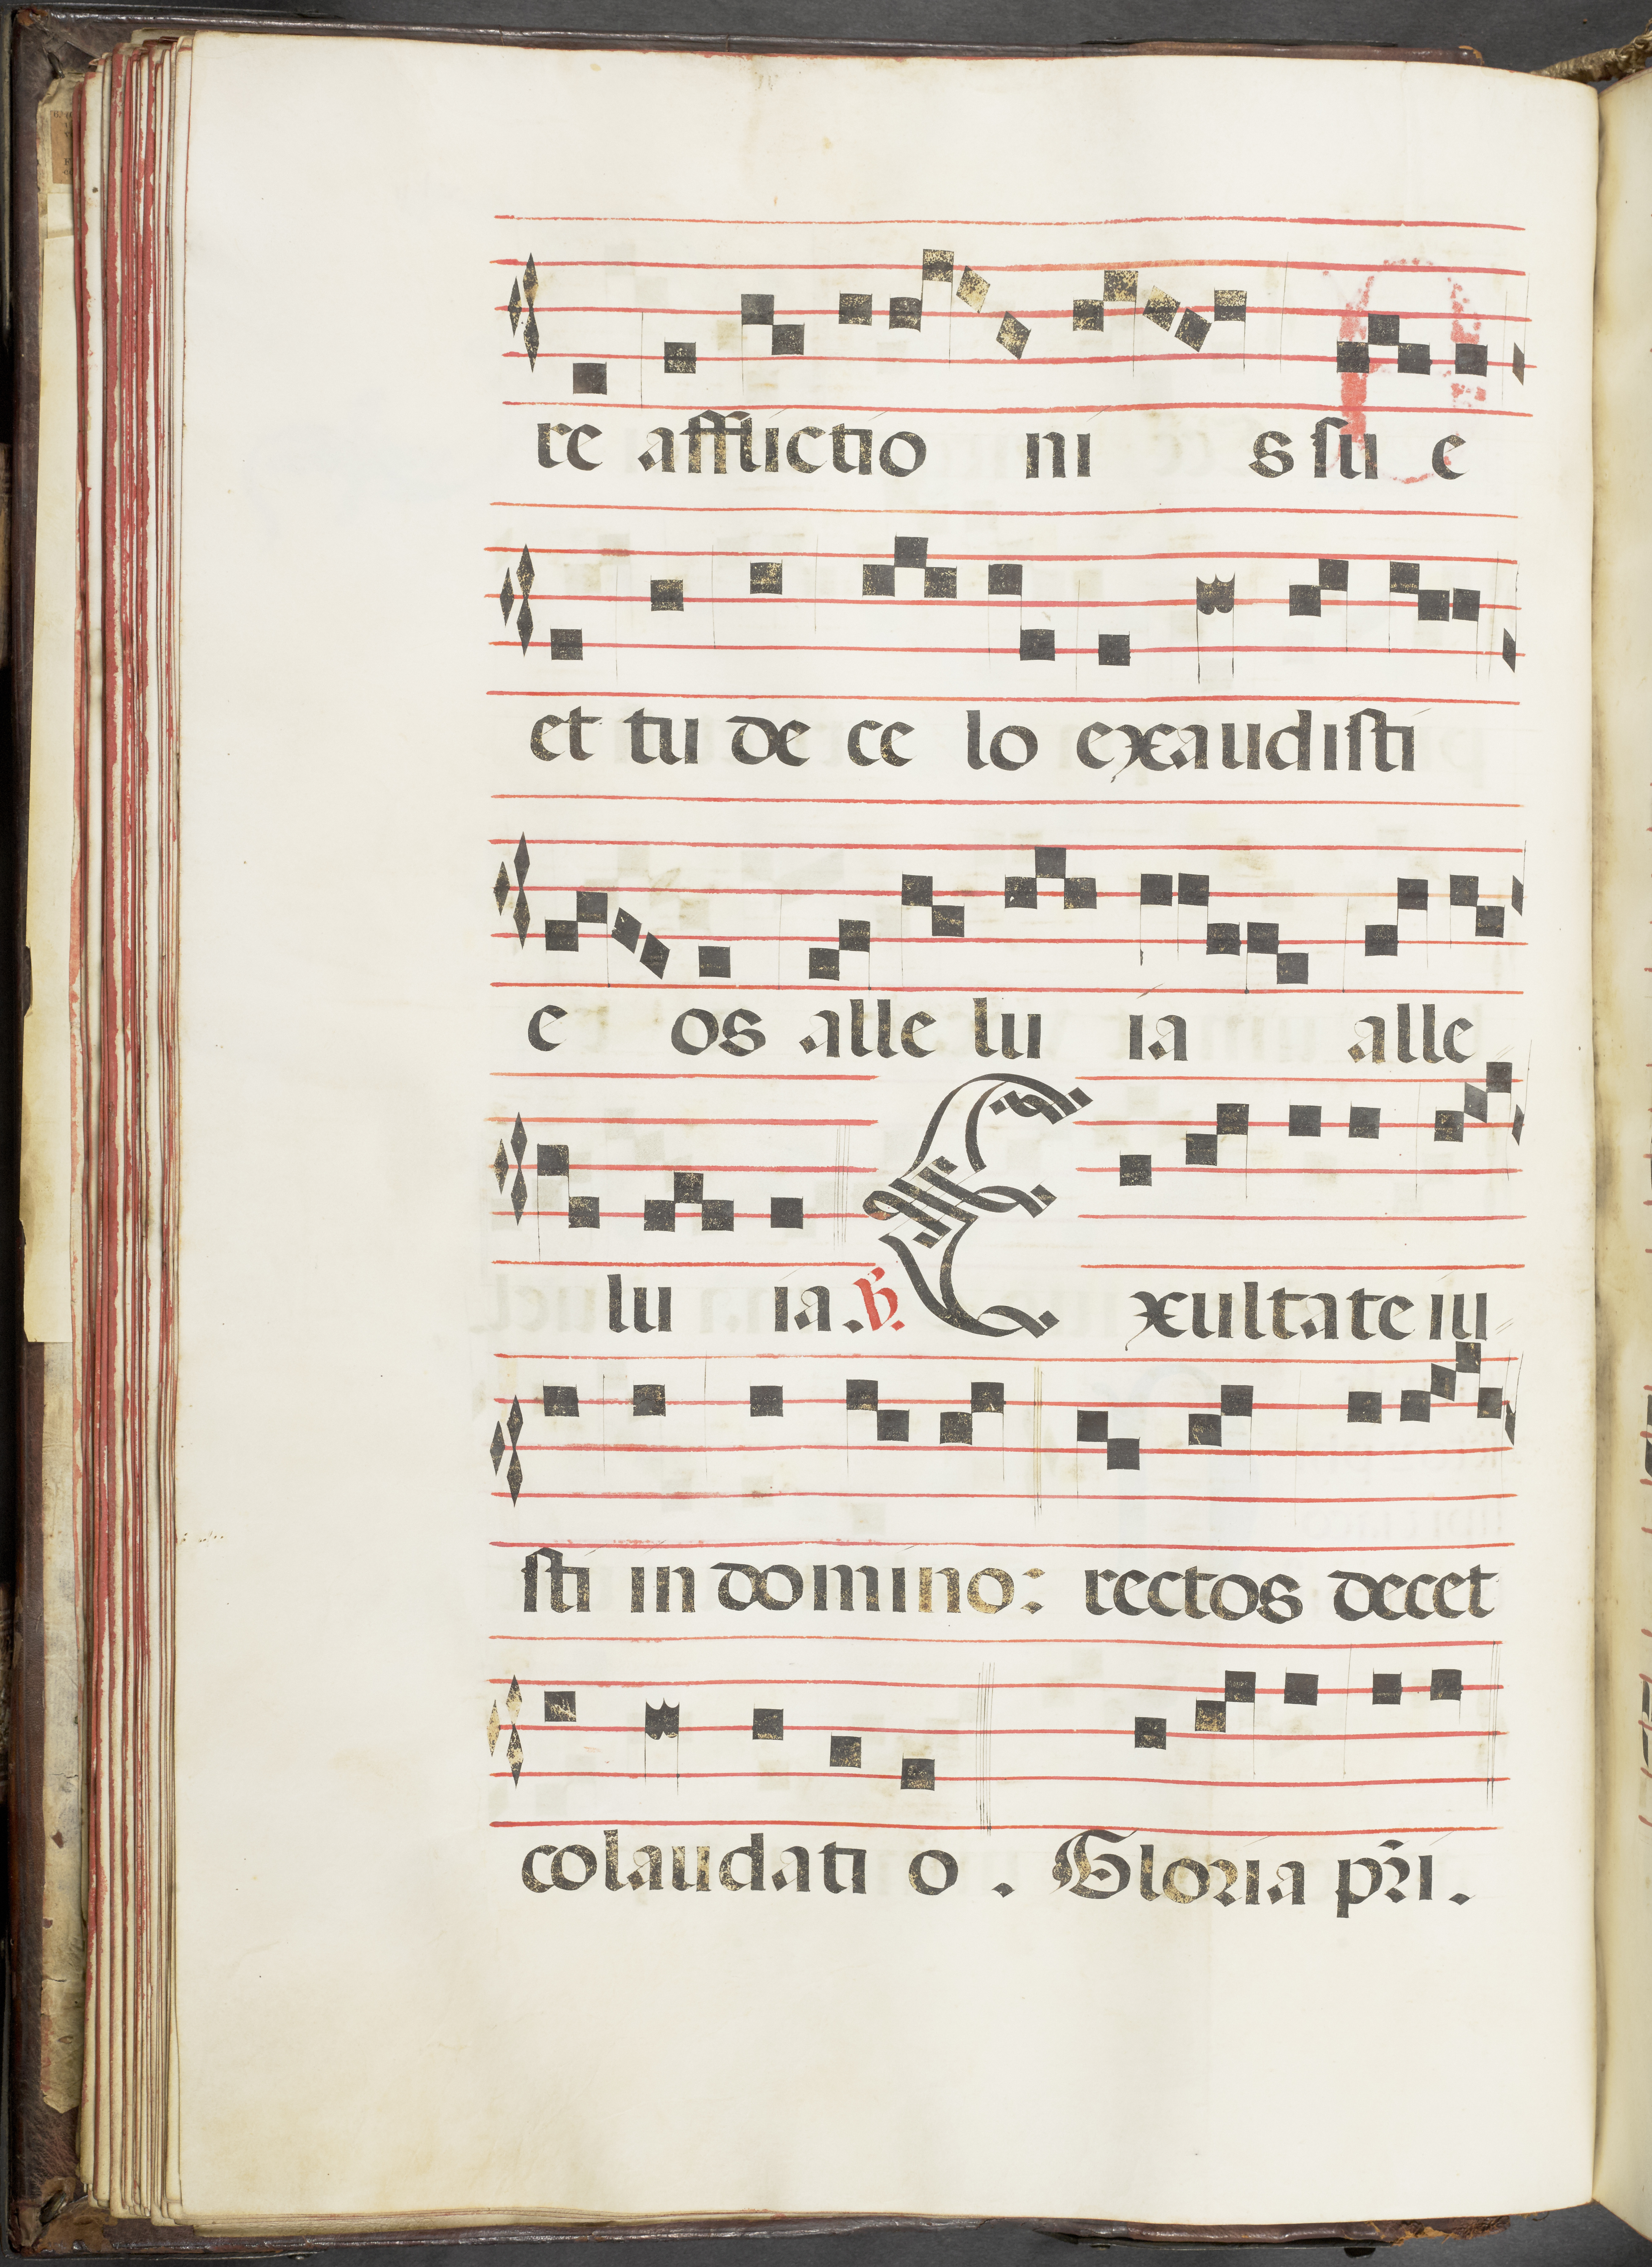 re afflictio ni s sti e
et tu de ce lo exaudisti
e os alle lu ia alle
lu ia. ℣. Exultate iu
sti in domino: rectos decet
colaudati o. Gloria pr̃i.